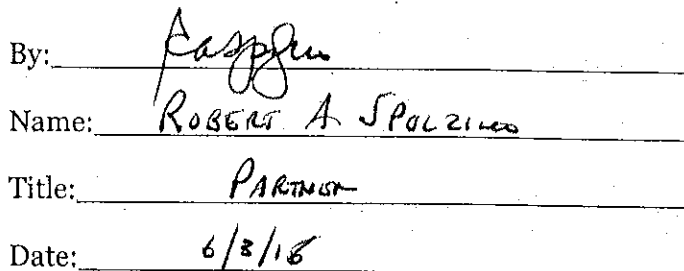 By:
Name: ROBERT A SPOLZINO
Title: PARTNER
Date: 6/3/15